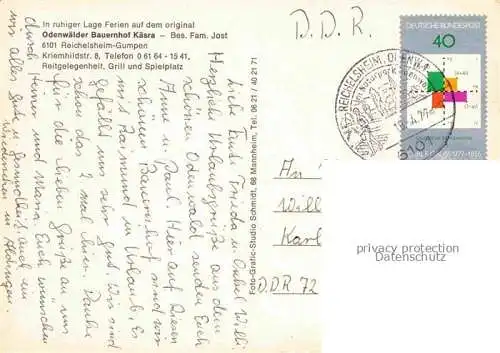 In ruhiger Lage Ferien auf dem original
Odenwälder Bauernhof Käsra – Bes. Fam. Jost
6101 Reichelsheim-Gumpen
Kriemhildstr. 8, Telefon 0 61 64 - 15 41,
Reitgelegenheit, Grill und Spielplatz
D.D.R.
Liebe Tante Frieda u. Onkel Willi.
Herzliche Urlaubsgrüße aus dem
schönen Odenwald senden Euch
Anne u. Paul. Hier auf diesen
schönen Bauernhof sind wir
mit Raimund in Urlaub. Es
gefällt uns sehr gut. Wir sind
schon das 2 mal hier. Danke
für die lieben Grüße an uns
durch Heiner und Maria. Euch wünschen
wir alles Gute u. Gesundheit, auch ein
Wiedersehen in Aldingen.
Foto-Grafic-Studio Schmidt, 68 Mannheim, Tel. 06 21 / 10 21 71
DEUTSCHE BUNDESPOST
40
REICHELSHEIM, ODENW
6101
1777-1855
An
Will
Karl
DDR 72
privacy protection
Datenschutz